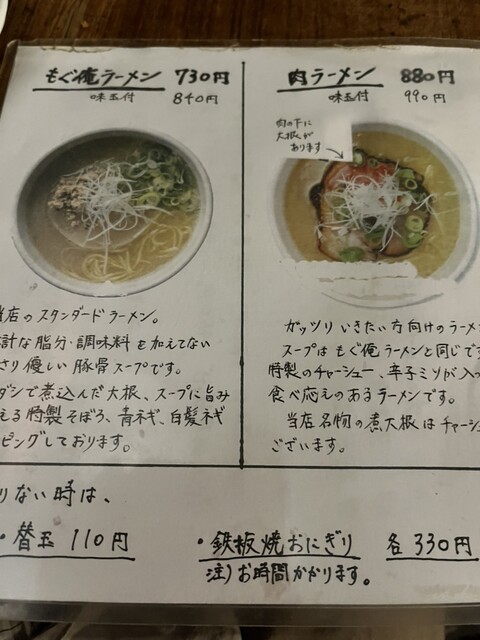 もぐ俺ラーメン 730円
味玉付 840円
当店のスタンダードラーメン。
計な脂分・調味料を加えてない
さり優しい豚骨スープです。
ダシで煮込んだ大根、スープに旨み
える特製そぼろ、青ネギ、白髪ネギ
ッピングしております。
肉ラーメン 880円
味玉付 990円
肉の下に
大根が
あります
ガッツリいきたい方向けのラーメ
スープはもぐ俺ラーメンと同じです
特製のチャーシュー、辛子ミソが入っ
食べ応えのあるラーメンです。
当店名物の煮大根はチャーシュ
ございます。
りない時は、
・替玉 110円
・鉄板焼おにぎり 各330円
注)お時間かかります。